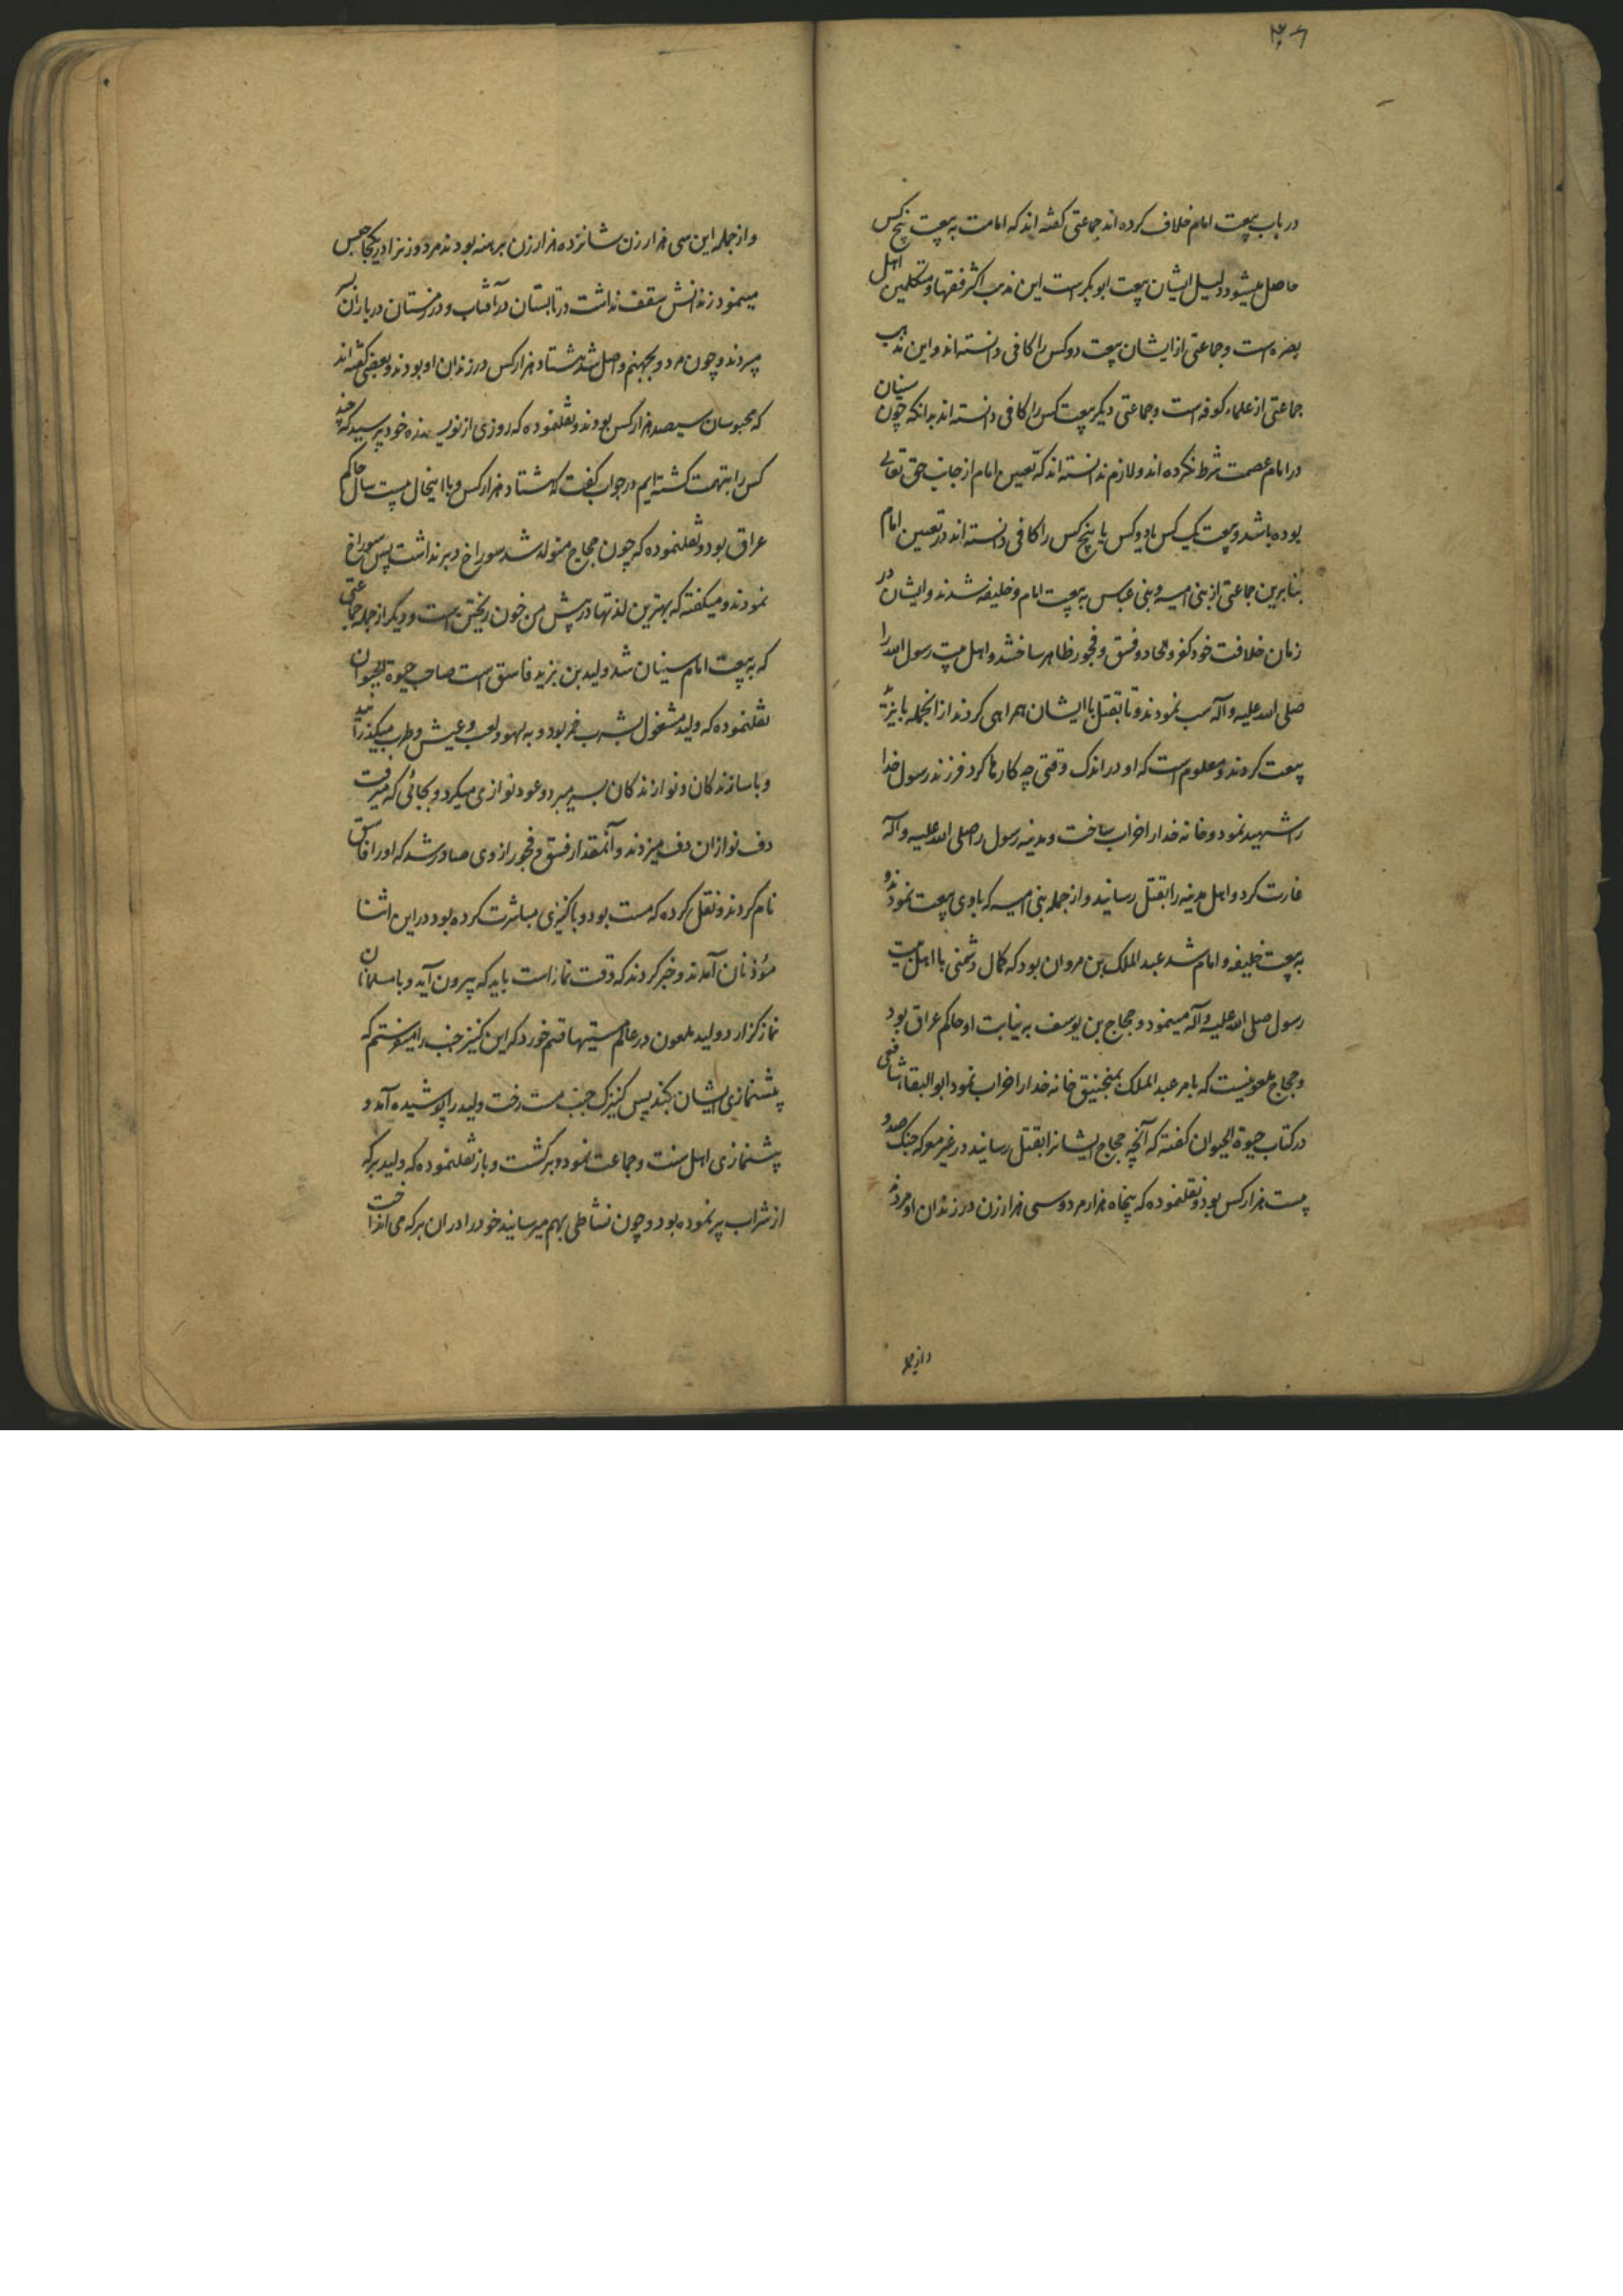 ۳۰۶
در باب بیعت امام خلاف کرده اند جماعتی گفته اند که امامت به بیعت پنج کس
حاصل میشود و دلیل ایشان بیعت ابوبکر است این مذهب اکثر فقها و متکلمین اهل
بصره است و جماعتی از ایشان بیعت دو کس را کافی دانسته اند و این مذهب
جماعتی از علماء کوفه است و جماعتی دیگر بیعت کس را کافی دانسته اند بدانکه چون سنیان
در امام عصمت شرط نکرده اند و لازم ندانسته اند که تعیین امام از جانب حق تعالی
بوده باشد و بیعت یک کس یا دو کس یا پنج کس را کافی دانسته اند در تعیین امام
بنابرین جماعتی از بنی امیه و بنی عباس به بیعت امام و خلیفه شدند و ایشان در
زمان خلافت خود کفر و الحاد و فسق و فجور ظاهر ساختند و اهل بیت رسول الله را
صلی الله علیه و آله سب نمودند و تا بقتل با ایشان همراهی کردند از انجمله با یزید
بیعت کردند و معلوم است که او در اندک وقتی چه کارها کرد فرزند رسول خدا
را شهید نمود و خانه خدا را خراب ساخت و مدینه رسول را صلی الله علیه و آله
غارت کرد و اهل مدینه را بقتل رسانید و از جمله بنی امیه که با وی بیعت نمودند و
به بیعت خلیفه و امام شد عبد الملک بن مروان بود که کمال دشمنی با اهل بیت
رسول صلی الله علیه و آله مینمود و حجاج بن یوسف به نیابت او حاکم عراق بود
و حجاج ملعونیست که بامر عبد الملک بمنجنیق خانه خدا را خراب نمود ابو البقاء شافعی
در کتاب حیوة الحیوان گفته که آنچه حجاج ایشانرا بقتل رسانید در غیر معرکه جنک صد و
بیست هزار کس بود و نقلنموده که پنجاه هزار مرد و سی هزار زن در زندان او مردند
و از جمله
و از جمله این سی هزار زن شانزده هزار زن برهنه بودند مرد و زنرا در یکجا حبس
مینمود زندانش سقف نداشت در تابستان در آفتاب و در زمستان در باران
میبردند و چون مرد و بجهنم واصل شد هشتاد هزار کس در زندان او بودند و بعضی گفته اند
که محبوسان سیصد هزار کس بودند و نقلنموده که روزی از نویسنده خود پرسید که چند
کس را بتهمت کشته ایم در جواب گفت که هشتاد هزار کس و با اینحال بیست سال حاکم
عراق بود و نقلنموده که چون حجاج متولد شد سوراخ دبر نداشت پس سوراخ
نمودند و میگفته که بهترین لذتها در پیش من خون ریختن است و دیگر از جمله جماعتی
که به بیعت امام سنیان شد ولید بن یزید فاسق است صاحب حیوة الحیوان
نقلنموده که ولید مشغول بشرب خمر بود و به لهو و لعب و عیش و طرب میگذرانید
و با سازندگان و نوازندگان بسر میبرد و عود نوازی میکرد و بجائی که میرفت
دف نوازان دف میزدند و آنمقدار فسق و فجور از وی صادر شد که او را فاسق
نام کردند و نقل کرده که مست بود و با کنیزی مباشرت کرده بود در این اثنا
مؤذنان آمدند و خبر کردند که وقت نماز است باید که بیرون آید و با مسلمانان
نماز گزارد و ولید ملعون در عالم مستیها قسم خورد که این کنیز جنب را میفرستم که
پیشنمازی ایشان بکند پس کنیزک جنب مست رخت ولید را پوشیده آمد و
پیشنمازی اهل سنت و جماعت نمود و برگشت و باز نقلنموده که ولید برکه
از شراب پر نموده بود و چون نشاطی بهم میرسانید خود را در ان برکه می انداخت